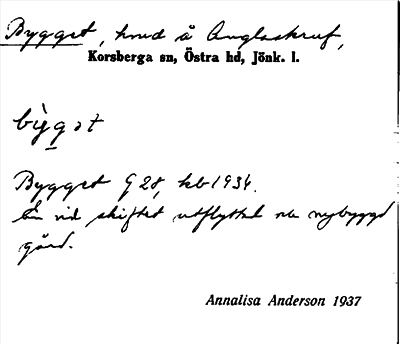 Bygget, hmd å Anglaskruf,
Korsberga sn, Östra hd, Jönk. l.
bỳgət
Bygget G 28, kb 1934.
En vid skiftet utflyttad o. nybyggd
gård.
Annalisa Anderson 1937